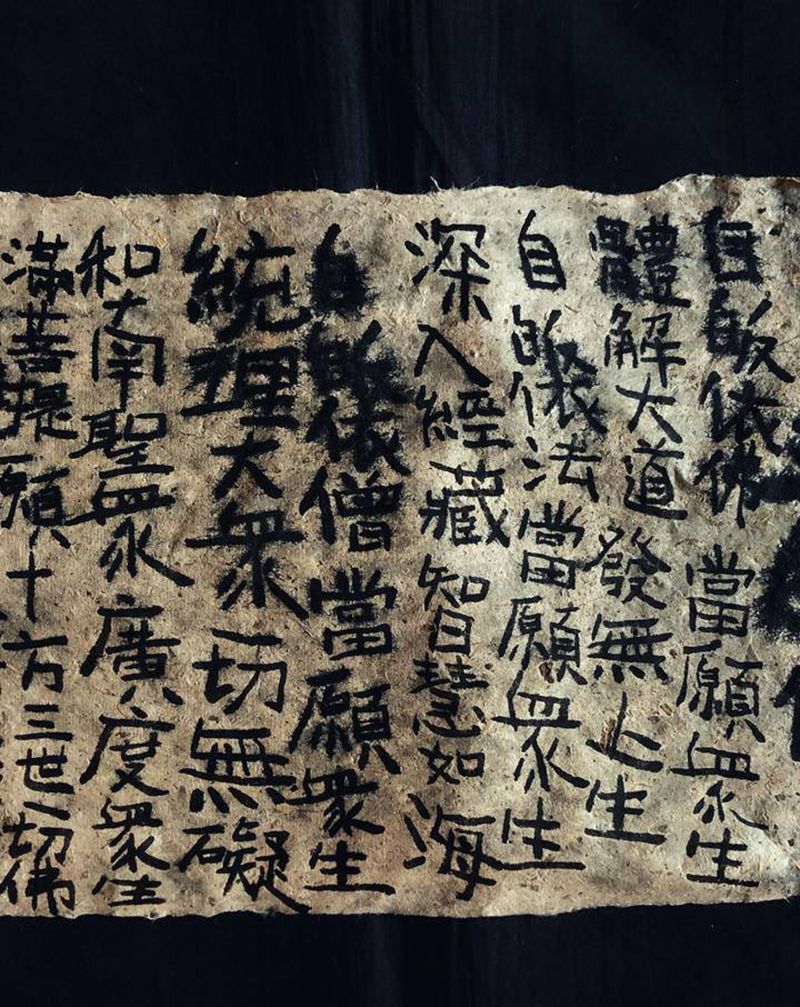 自皈依佛當願衆生
體解大道發無上生
自皈依法當願衆生
深入經藏智慧如海
自皈依僧當願衆生
統理大衆一切無礙
和南聖衆廣度衆生
滿菩提願十方三世一切佛